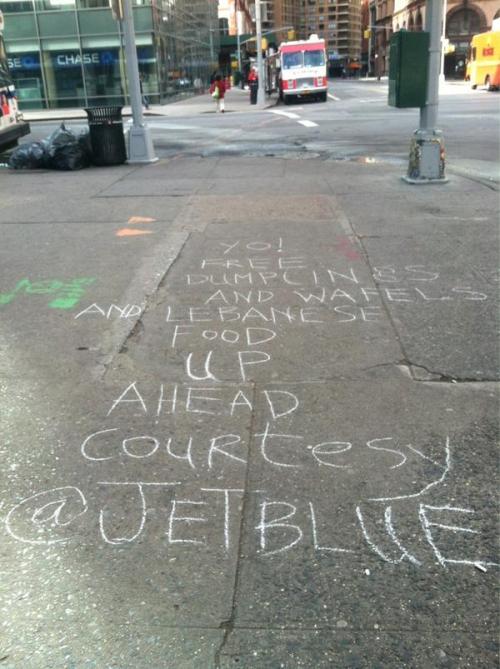 SE
CHASE
YO!
FREE
DUMPLINGS
AND WAFELS
AND LEBANESE
FOOD
UP
AHEAD
COURtesy
@JETBLUE